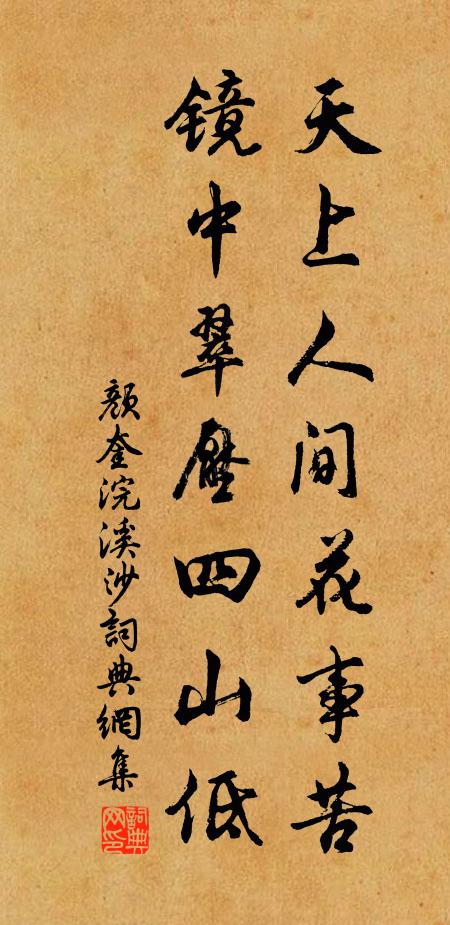 天上人间花事苦
镜中翠压四山低
颜奎浣溪沙詞典網集
詞典网印